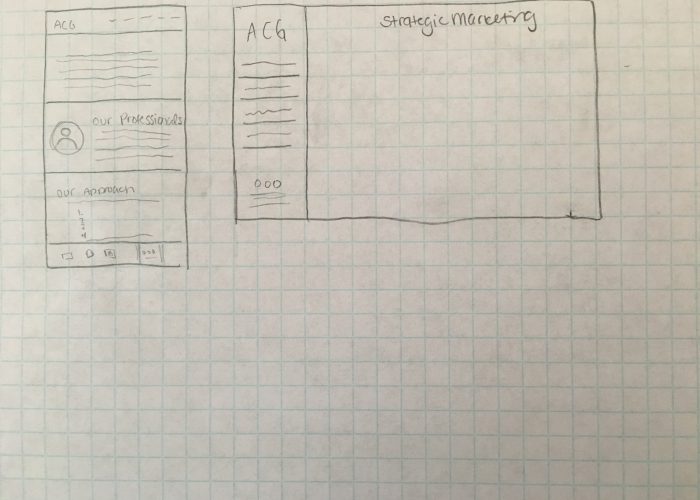 ACG
Our Professionals
Our Approach
1.
2.
3.
4.
ACG
Strategic Marketing